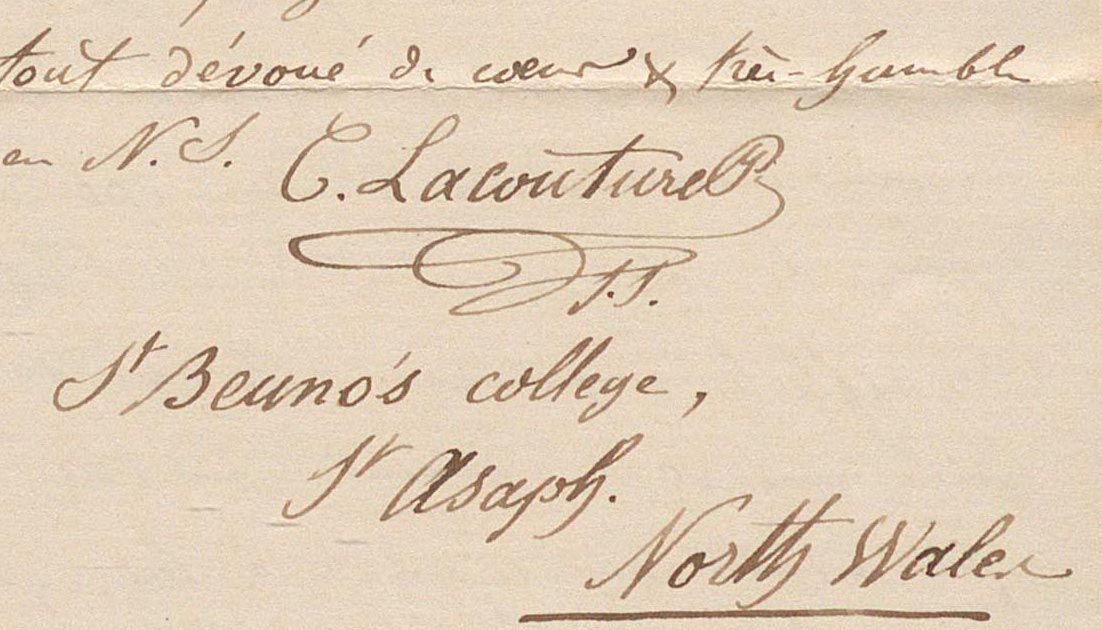 tout dévoué de cœur & très-humble
en N.S. C. Lacouture P.
S.J.
St Beuno's college,
St Asaph.
North Wales